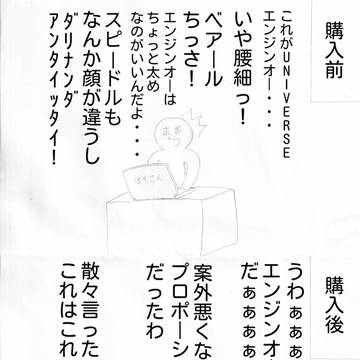 購入前
これがUNIVERSE
エンジンオー・・・
いや腰細っ！
ベアール
ちっさ！
エンジンオーは
ちょっと太め
なのがいいんだよ・・・
スピードルも
なんか顔が違うし
ダリナンダ
アンタイッタイ！
おやつ
ぱそこん
購入後
うわぁぁぁ
エンジンオ
だぁぁぁぁ
案外悪くな
プロポーシ
だったわ
散々言った
これはこれ